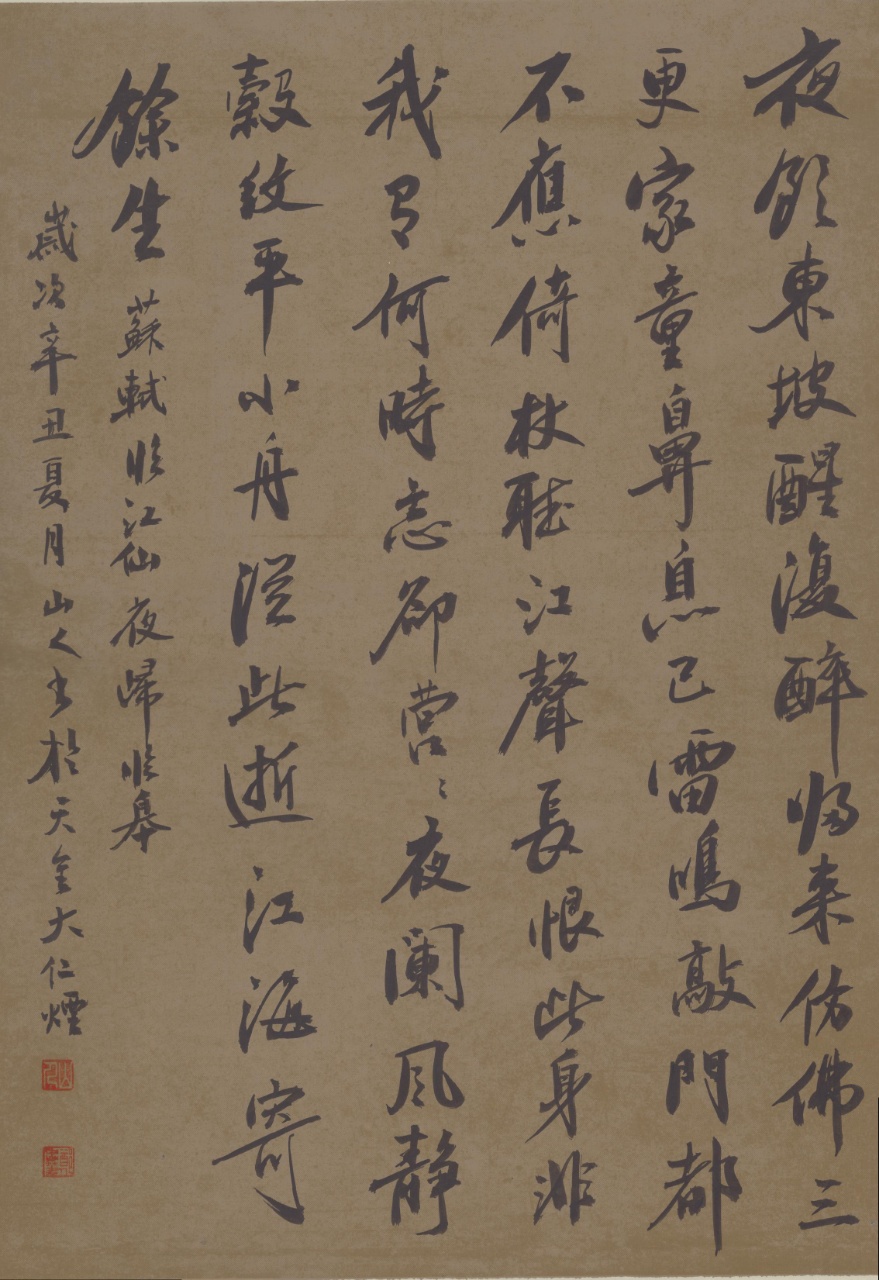 夜飲東坡醒復醉归来仿佛三
更家童鼻息已雷鳴敲門都
不應倚杖聽江聲長恨此身非
我有何時忘卻營々夜闌風静
縠紋平小舟從此逝江海寄
餘生 蘇軾临江仙夜歸临皋
歲次辛丑夏月山人书於天金大仁煙
山人